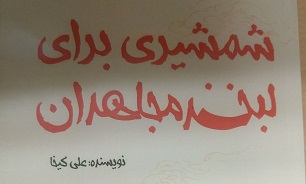 شمشیری برای
لبخند مجاهدان
نویسنده: علی کیخا